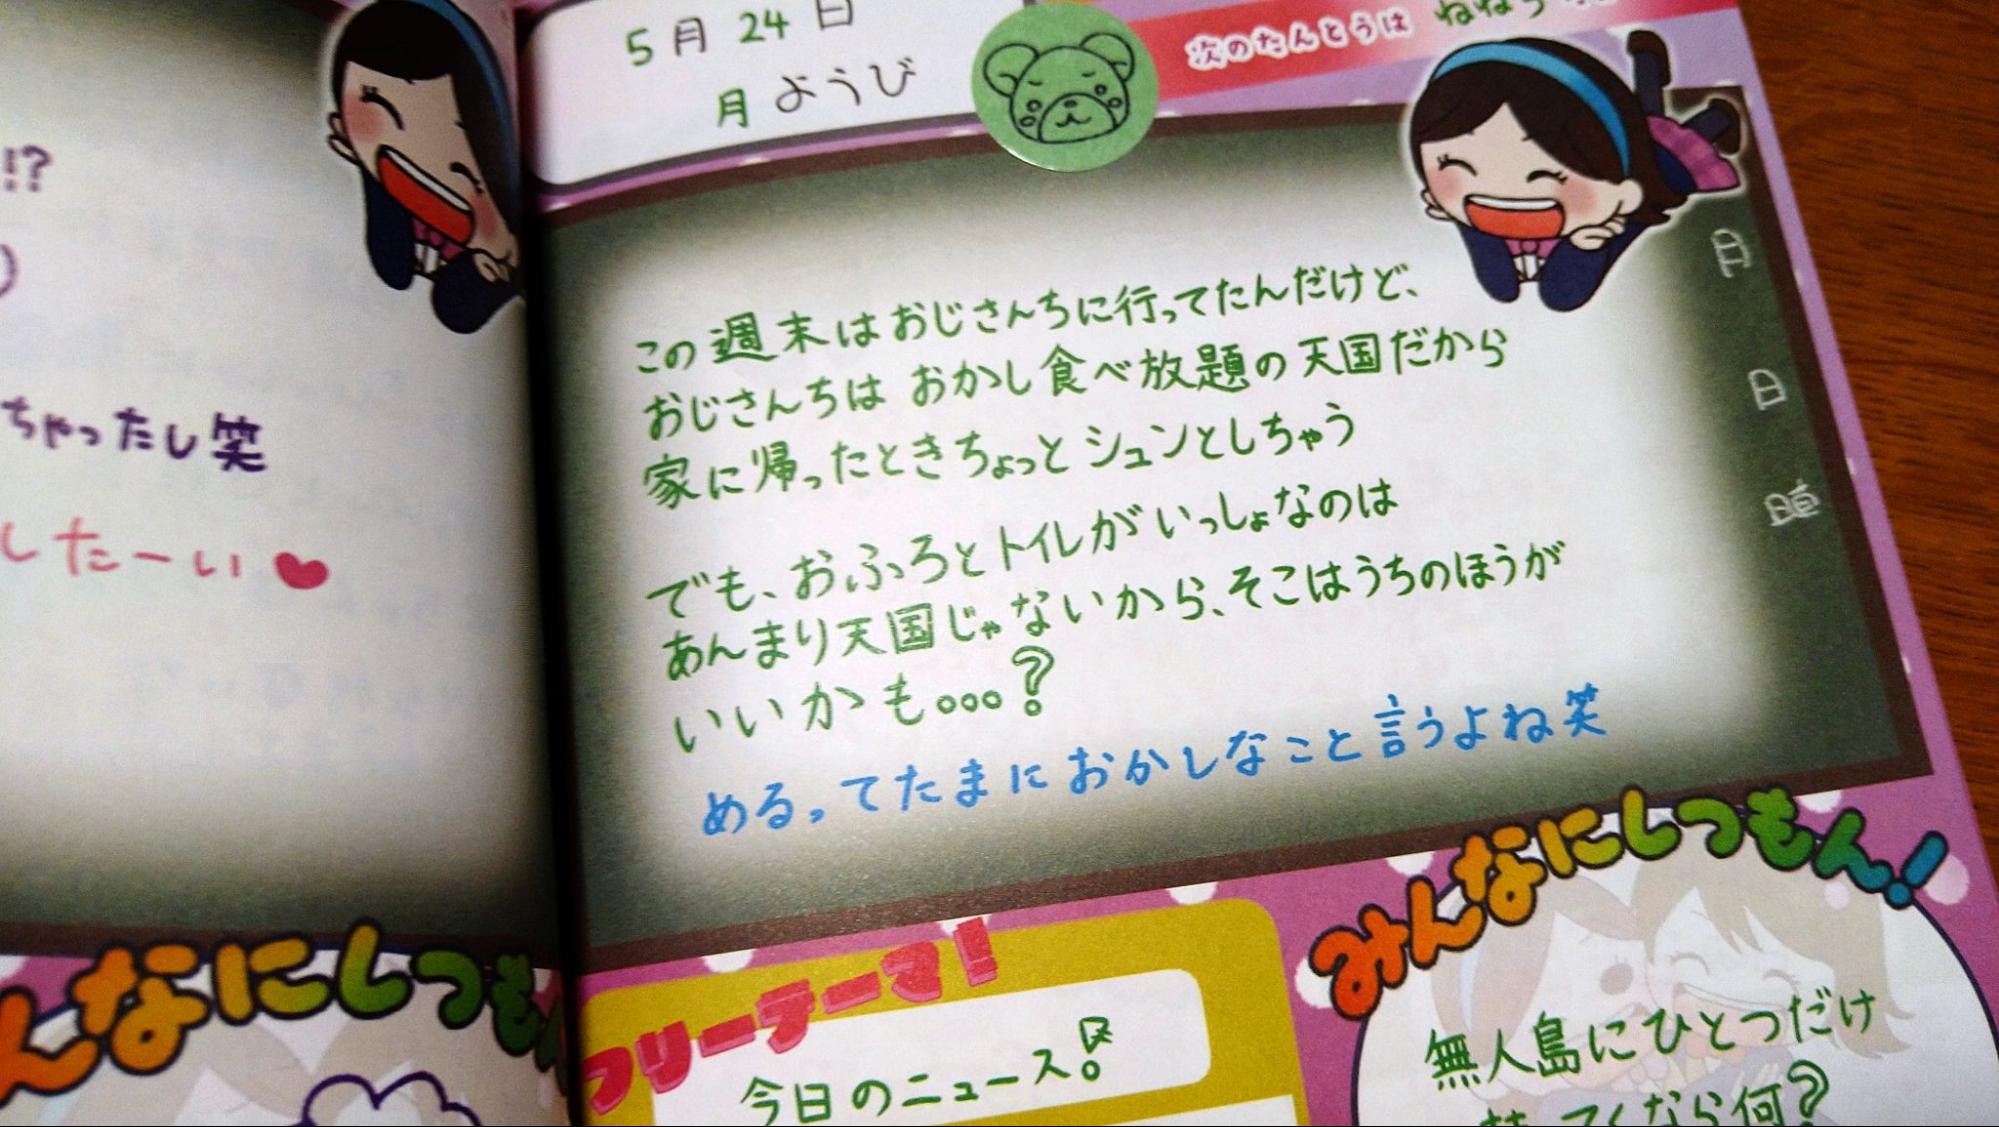 !?
ちゃったし笑
したーい
5月24日
月ようび
次のたんとうは
この週末はおじさんちに行ってたんだけど、
おじさんちは おかし食べ放題の天国だから
家に帰ったときちょっとシュンとしちゃう
でも、おふろとトイレがいっしょなのは
あんまり天国じゃないから、そこはうちのほうが
いいかも…?
める。ってたまにおかしなこと言うよね笑
んなにしつも
フリーテーマ!
今日のニュース!
みんなにしつもん!
無人島にひとつだけ
なら何?